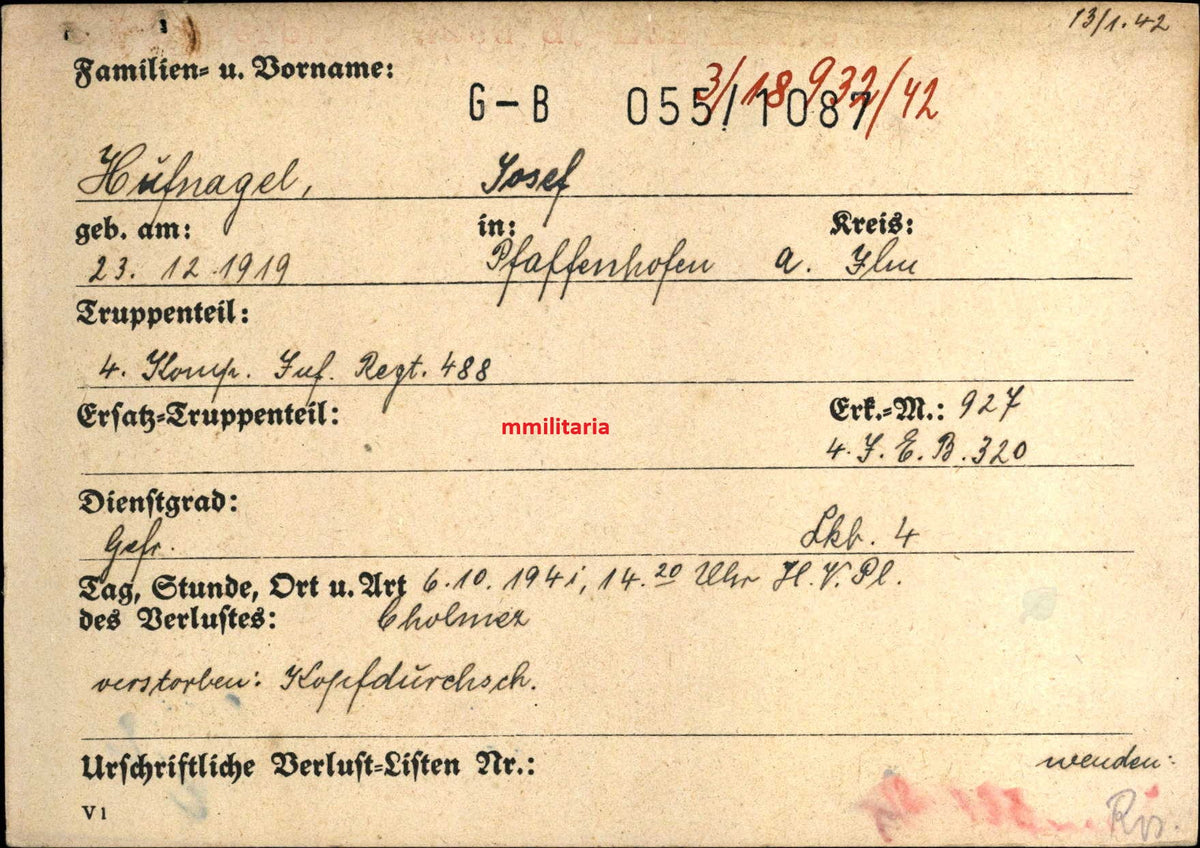 13/1.42
Familien- u. Vorname:
3/18932/42
G-B 055/1087
Hufnagel, Josef
geb. am: in: Kreis:
23. 12. 1919 Pfaffenhofen a. Ilm
Truppenteil:
4. Komp. Inf. Regt. 488
Ersatz-Truppenteil: Erk.-M.: 927
mmilitaria
4. I. E. B. 320
Dienstgrad:
Gefr. Lkb. 4
Tag, Stunde, Ort u. Art 6.10.1941, 14.20 Uhr H.V.Pl.
des Verlustes: Cholmez
verstorben: Kopfdurchsch.
Urschriftliche Verlust-Listen Nr.: wenden:
V1